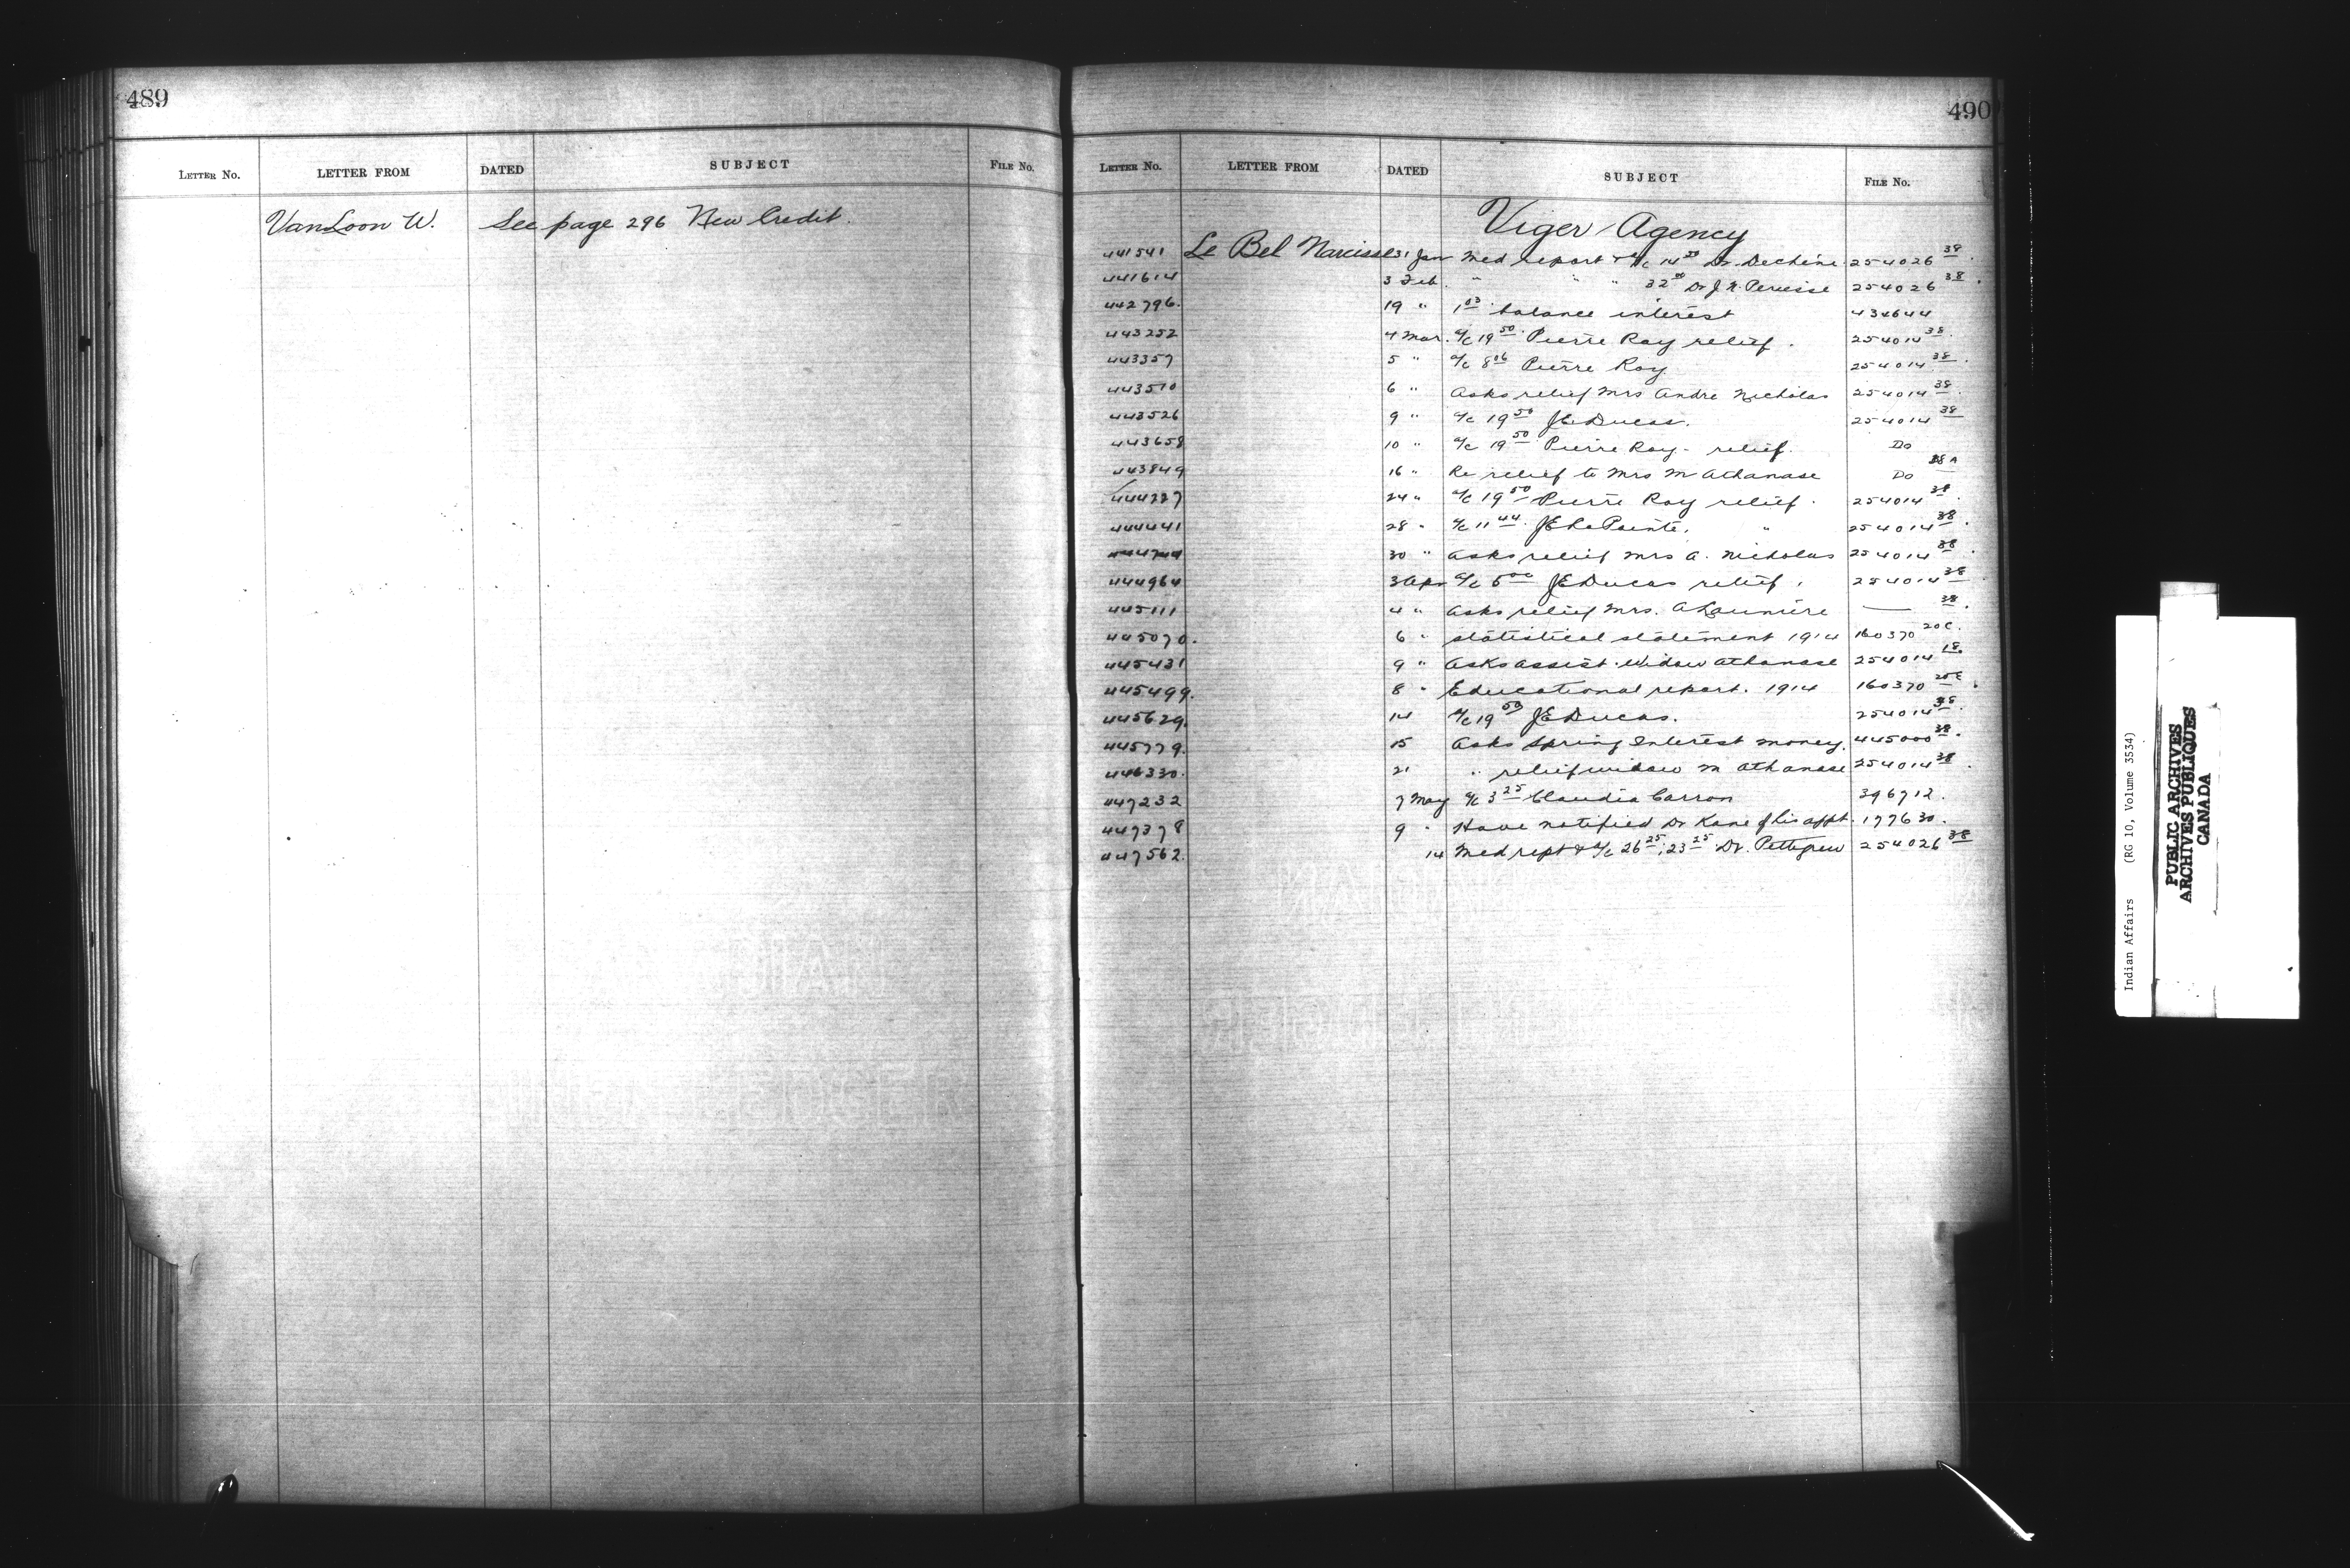 489
LETTER No. LETTER FROM DATED SUBJECT FILE No.
VanLoon W. See page 296 New Credit.
490
LETTER No. LETTER FROM DATED SUBJECT FILE No.
Viger Agency
441541 Le Bel Narcisse 31 Jan Med report & a/c 14 50 Dr. Dechene 254026 38
441614 3 Feb. " " " 32 50 Dr J. N. Perusse 254026 38
442796. 19 " 1 03 balance interest 434644
443252 4 Mar. a/c 19 50 Pierre Ray relief. 254014 38
443357 5 " a/c 8 06 Pierre Ray 254014 38
443510 6 " Asks relief Mrs Andre Nicholas 254014 38
443526 9 " a/c 19 50 J E Ducas. 254014 38
443658 10 " a/c 19 50 Pierre Ray - relief. Do
443849 16 " Re relief to Mrs M Athanase Do 38A
444227 24 " a/c 19 50 Pierre Ray relief. 254014 38
444441 28 " a/c 11 44 J E LaPointe, " 254014 38
30 " Asks relief Mrs A. Nicholas 254014 38
444964 3 Apr a/c 5 00 J E Ducas relief, 254014 38
445111 4 " Asks relief Mrs. A Launiere — 38
445070. 6 " Statistical statement 1914 160370 20C.
445431 9 " Asks assist. Widow Athanase 254014 18
445499. 8 " Educational report. 1914 160370 20C
445629. 14 a/c 19 50 J E Ducas. 254014 38
445779. 15 Asks Spring Interest money. 445000 38
446330. 21 " relief widow M Athanase 254014 38
447232 7 May a/c 3 25 Claudia Carron 396712.
447378 9 " Have notified Dr Kane of his appt. 177630.
447562. 14 Med rept & a/c 26 25; 23 25 Dr. Pettigrew 254026 38
Indian Affairs (RG 10, Volume 3534)
PUBLIC ARCHIVES
ARCHIVES PUBLIQUES
CANADA